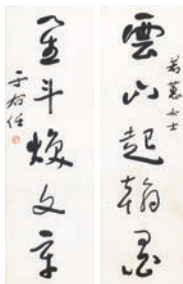 若蕙女士
雲山起翰墨
星斗煥文章
于右任